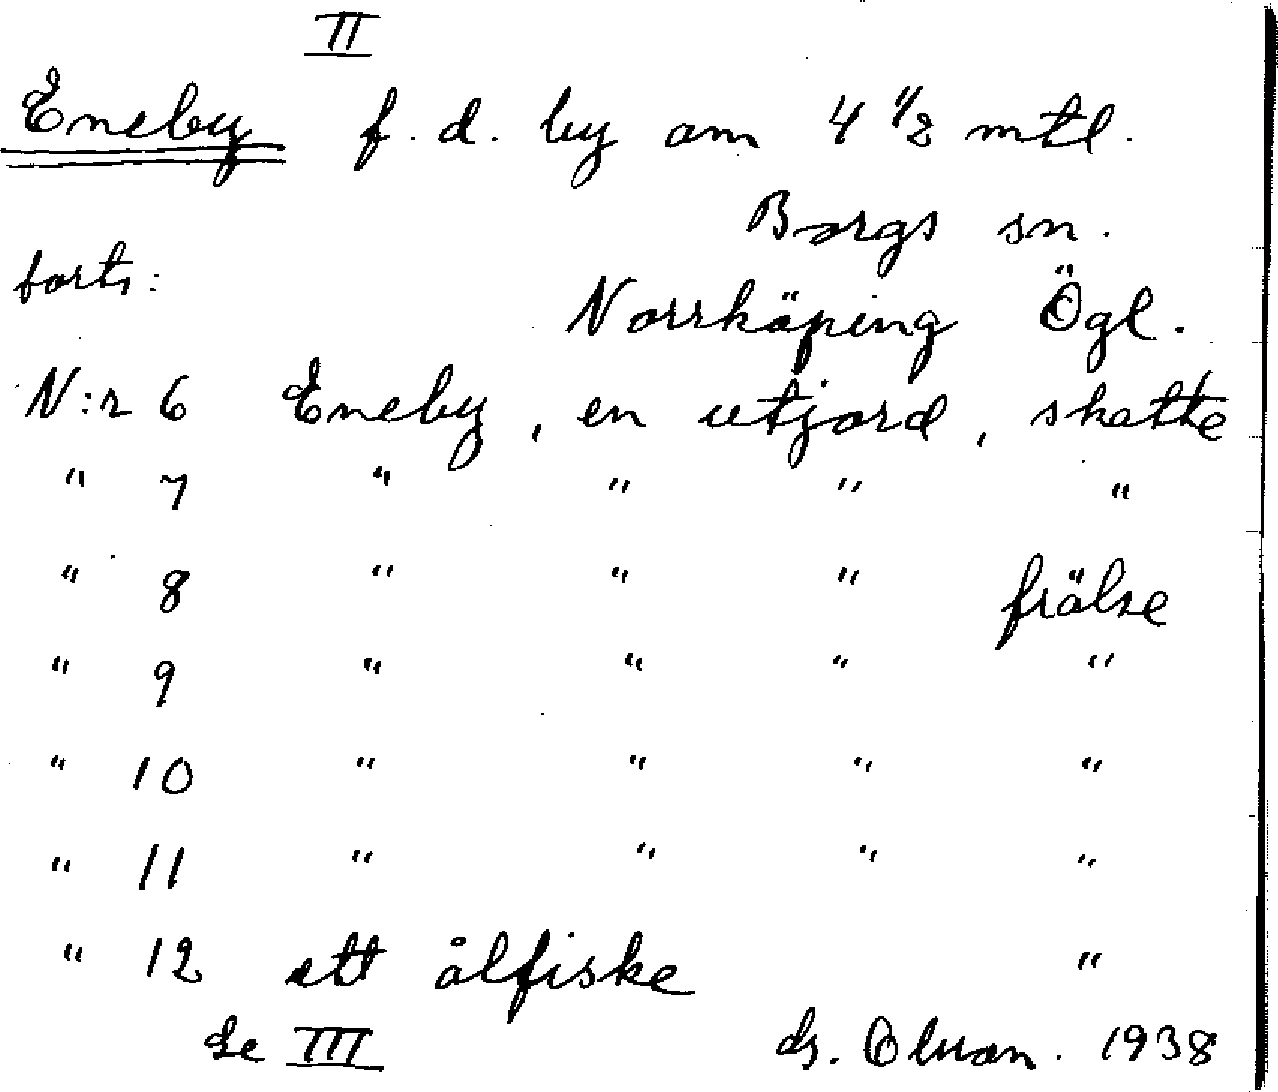 II
Eneby f. d. by om 4 1/2 mtl.
Borgs sn.
forts:
Norrköping Ögl.
N:r 6 Eneby, en utjord, skatte
" 7 " " " "
" 8 " " " frälse
" 9 " " " "
" 10 " " " "
" 11 " " " "
" 12 ett ålfiske "
Se III 1938